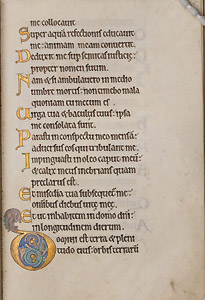 me collocauit
Super aqua refectionis educauit
me: animam meam conuertit.
Deduxit me sup semitas iusticie:
propter nomen suum.
Nam & si ambulauero in medio
umbre mortis: non timebo mala
quoniam tu mecum es.
Uirga tua & baculus tuus: ipsa
me consolata sunt.
Parasti in conspectu meo mensā:
aduersus eos qui tribulant me.
Inpinguasti in oleo caput meū:
& calix meus inebrians quam
preclarus est.
Et misedia tua subsequet me:
omnibus diebus uite mee.
Et ut inhabitem in domo dn̄i:
in longitudinem dierum.
Domini est terra & pleni
tudo eius: orbis terrarū